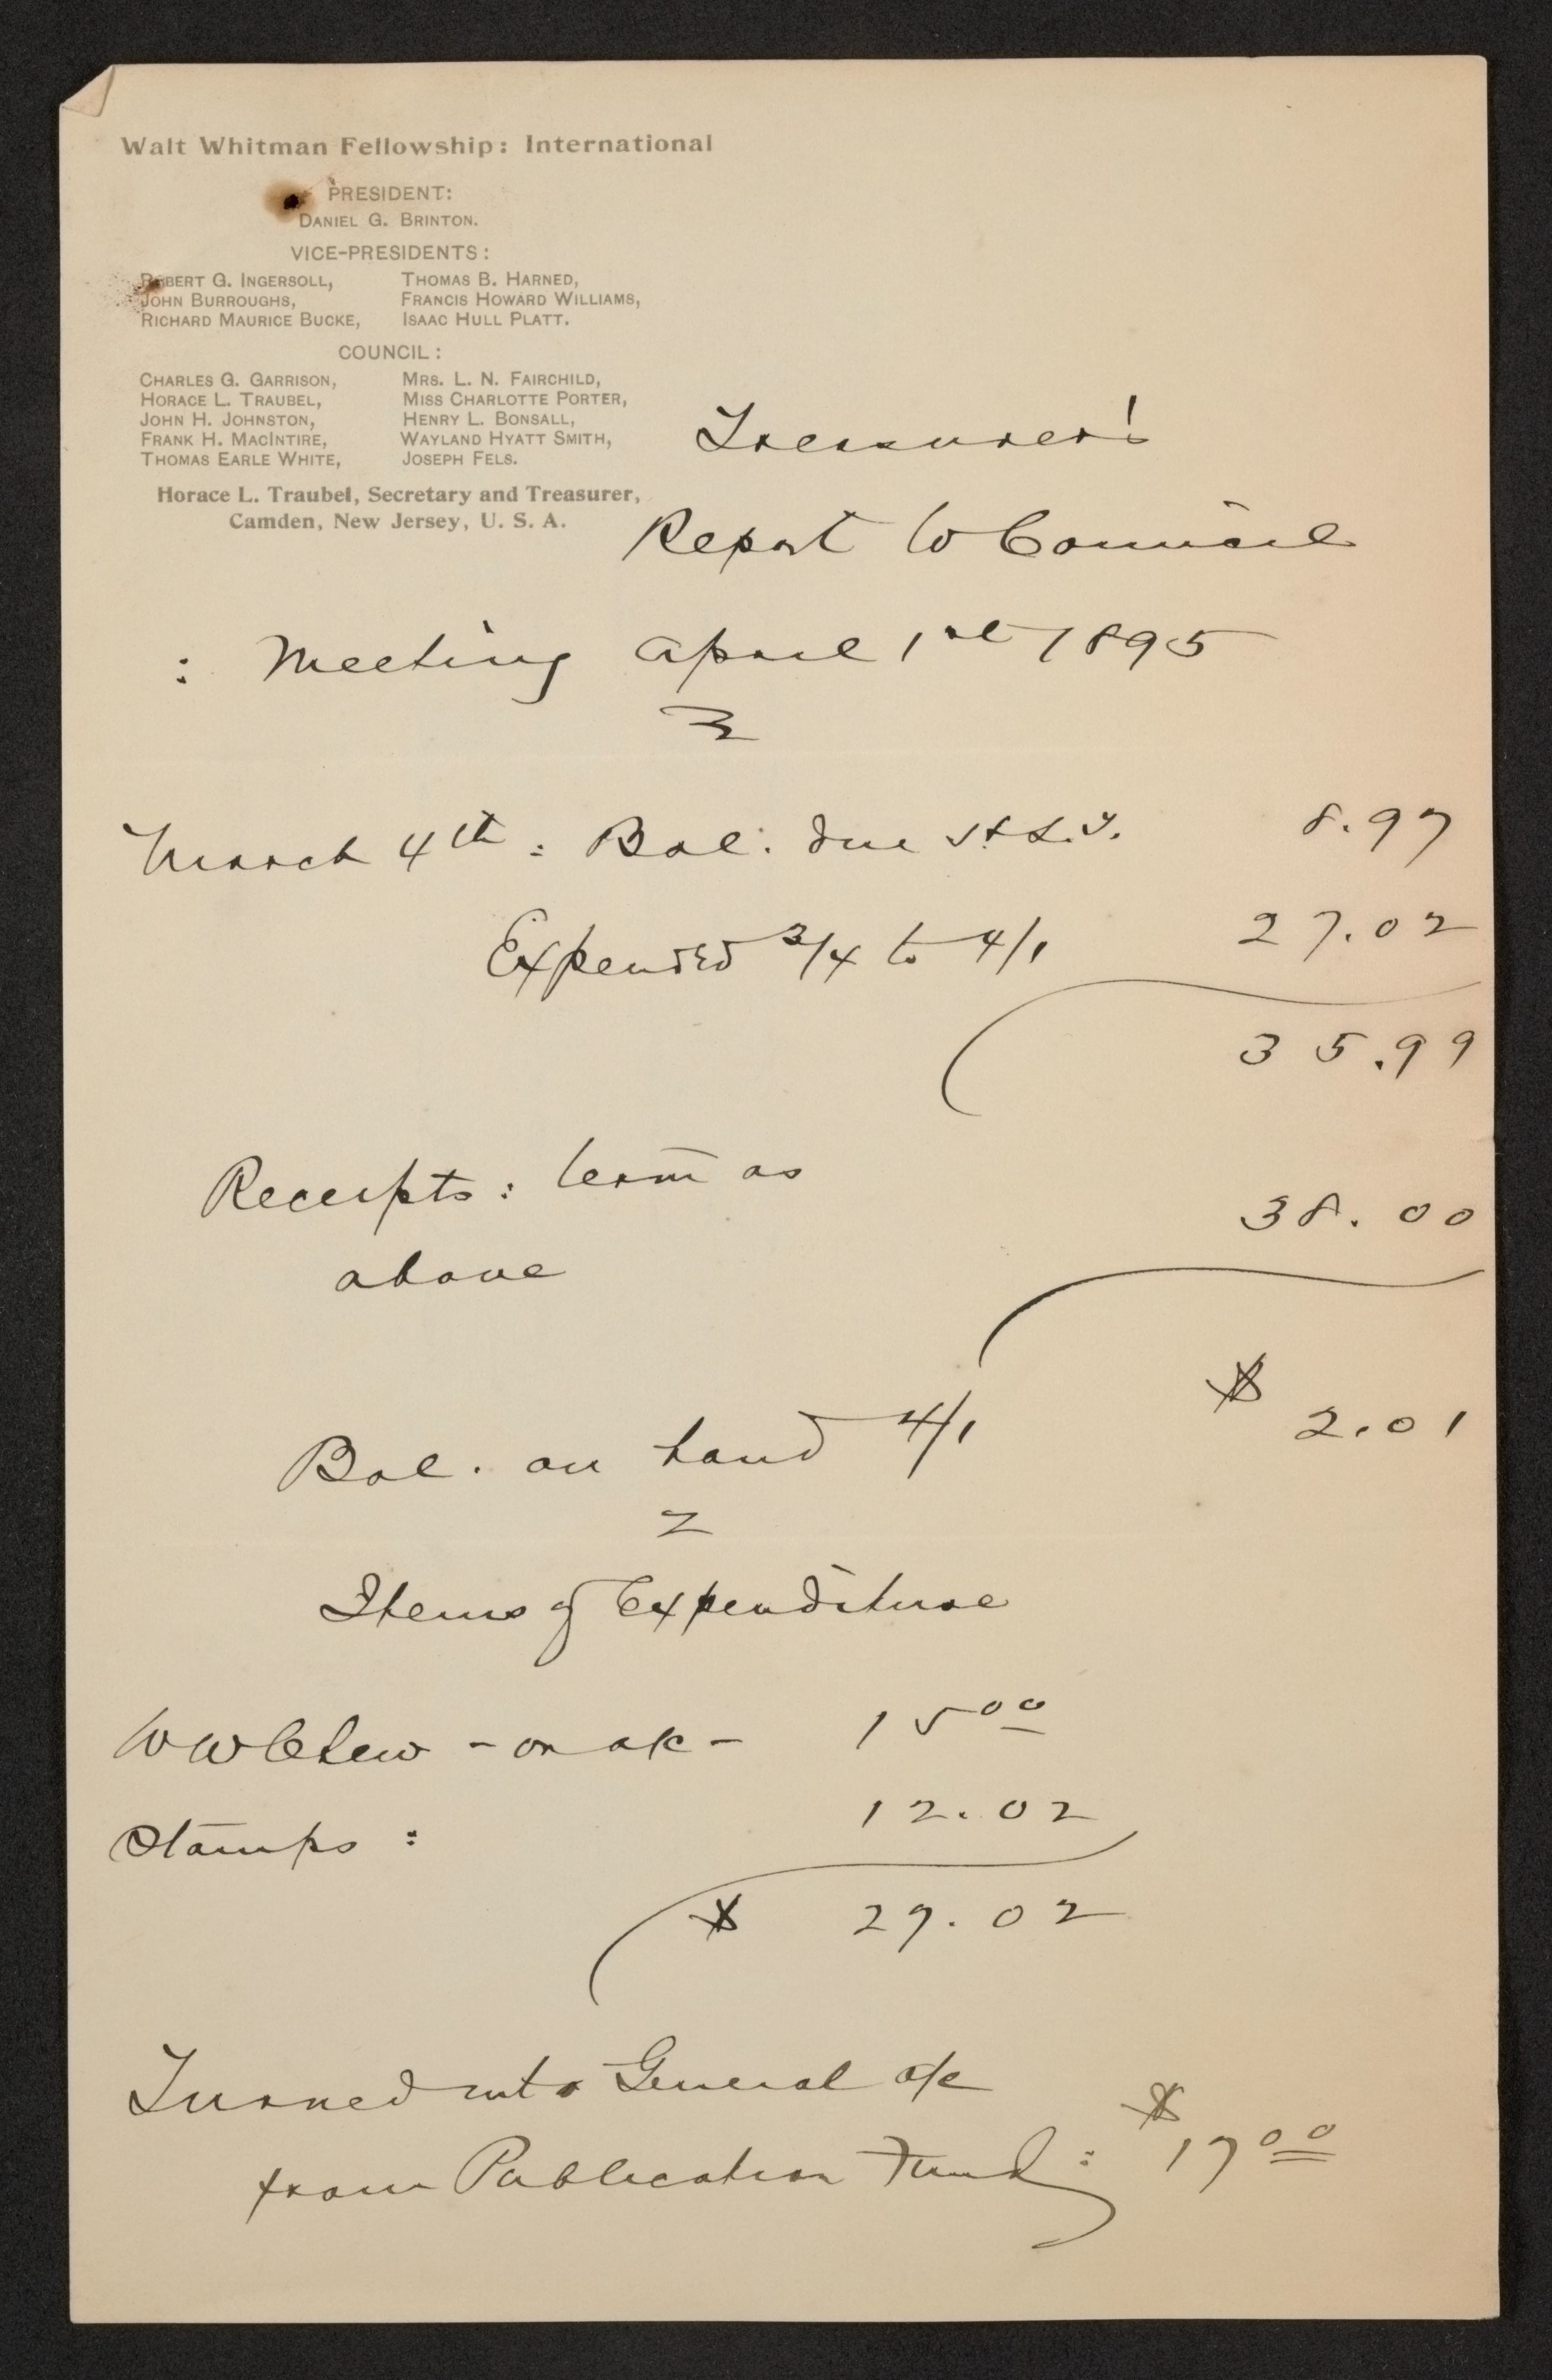 Walt Whitman Fellowship: International
PRESIDENT:
DANIEL G. BRINTON.
VICE-PRESIDENTS:
ROBERT G. INGERSOLL, THOMAS B. HARNED,
JOHN BURROUGHS, FRANCIS HOWARD WILLIAMS,
RICHARD MAURICE BUCKE, ISAAC HULL PLATT.
COUNCIL:
CHARLES G. GARRISON, MRS. L. N. FAIRCHILD,
HORACE L. TRAUBEL, MISS CHARLOTTE PORTER,
JOHN H. JOHNSTON, HENRY L. BONSALL,
FRANK H. MACINTIRE, WAYLAND HYATT SMITH,
THOMAS EARLE WHITE, JOSEPH FELS.
Horace L. Traubel, Secretary and Treasurer,
Camden, New Jersey, U. S. A.
Treasurer's
Report to Council
: Meeting April 1st 1895
March 4th : Bal. due H.L.T. 8.97
Expended 3/4 to 4/1 27.02
35.99
Receipts : term as
above 38.00
Bal. on hand 4/1 $ 2.01
Items of Expenditure
WW Chew - on a/c - 15 00
Stamps : 12.02
$ 27.02
Turned into General a/c
from Publication Fund : $ 17 00